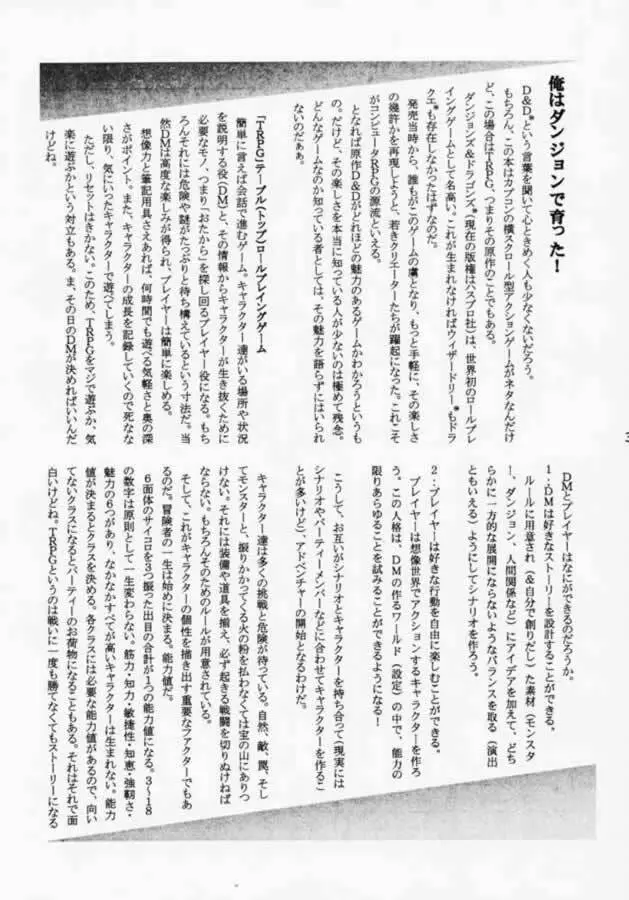 俺はダンジョンで育った!
D&D*という言葉を聞いて心ときめく人も少なくないだろう。
もちろん、この本はカプコンの横スクロール型アクションゲームがネタなんだけ
ど、この場合はTRPG、つまりその原作のことでもある。
ダンジョンズ&ドラゴンズ*(現在の版権はハスブロ社)は、世界初のロールプレ
イングゲームとして名高い。これが生まれなければウィザードリー*もドラ
クエ*も存在しなかったはずなのだ。
発売当時から、誰もがこのゲームの虜となり、もっと手軽に、その楽しさ
の幾許かを再現しようと、若きクリエーターたちが躍起になった。これこそ
がコンピュータRPGの源流といえる。
となれば原作D&Dがどれほどの魅力のあるゲームかわかろうというも
の。だけど、その楽しさを本当に知っている人が少ないのは極めて残念。
どんなゲームなのか知っている者としては、その魅力を語らずにはいられ
ないのだぁぁ。
「TRPG」テーブル(トップ)ロールプレイングゲーム
簡単に言えば会話で進むゲーム。キャラクター達がいる場所や状況
を説明する役(DM)と、その情報からキャラクターが生き抜くために
必要なモノ、つまり「おたから」を探し回るプレイヤー役になる。もち
ろんそれには危険や謎がたっぷりと待ち構えているという寸法だ。当
然DMは高度な楽しみが得られ、プレイヤーは簡単に楽しめる。
想像力と筆記用具さえあれば、何時間でも遊べる気軽さと奥の深
さがポイント。また、キャラクターの成長を記録していくので死なな
い限り、気にいったキャラクターで遊べてしまう。
ただし、リセットはきかない。このため、TRPGをマジで遊ぶか、気
楽に遊ぶかという対立もある。ま、その日のDMが決めればいいんだ
けどね。
DMとプレイヤーはなにができるのだろうか。
1:DMは好きなストーリーを設計することができる。
ルールに用意され(&自分で創りだし)た素材(モンスタ
ー、ダンジョン、人間関係など)にアイデアを加えて、どち
らかに一方的な展開にならないようなバランスを取る(演出
ともいえる)ようにしてシナリオを作ろう。
2:プレイヤーは好きな行動を自由に楽しむことができる。
プレイヤーは想像世界でアクションするキャラクターを作ろ
う。この人格は、DMの作るワールド(設定)の中で、能力の
限りあらゆることを試みることができるようになる!
こうして、お互いがシナリオとキャラクターを持ち合って(現実には
シナリオやパーティーメンバーなどに合わせてキャラクターを作るこ
とが多いけど)、アドベンチャーの開始となるわけだ。
キャラクター達は多くの挑戦と危険が待っている。自然、敵、罠、そし
てモンスターと、振りかかってくる火の粉を払わなくては宝の山にありつ
けない。それには装備や道具を揃え、必ず起きる戦闘を切りぬけねば
ならない。もちろんそのためのルールが用意されている。
そして、これがキャラクターの個性を描き出す重要なファクターでもあ
るのだ。冒険者の一生は始めに決まる。能力値だ。
6面体のサイコロを3つ振った出目の合計が1つの能力値になる。3~18
の数字は原則として一生変わらない。筋力・知力・敏捷性・知恵・強靭さ・
魅力の6つがあり、なかなかすべてが高いキャラクターは生まれない。能力
値が決まるとクラスを決める。各クラスには必要な能力値があるので、向い
てないクラスになるとパーティーのお荷物になることもある。それはそれで面
白いけどね。TRPGというのは戦いに一度も勝てなくてもストーリーになる